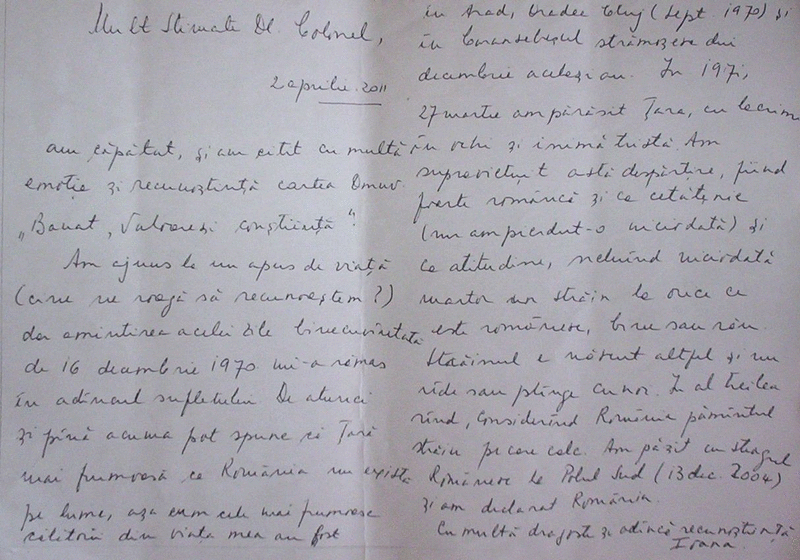 Mult Stimate Dl Colonel,
2 aprilie 2011
am căpătat, și am citit cu multă
emoție și recunoștință cartea Dmav.
„Banat, Valoare și conștiință”.
Am ajuns la un apus de viață
(cine ne roagă să recunoaștem?)
dar amintirea acelei zile binecuvîntată
de 16 decembrie 1970 mi-a rămas
în adîncul sufletului. De atunci
și pînă acuma pot spune că Țară
mai frumoasă ca România nu există
pe lume, așa cum cele mai frumoase
călătorii din viața mea au fost
în Arad, Oradea Cluj (sept. 1970) și
în Caransebeșul strămoșesc din
decembrie același an. În 1971,
27 martie am părăsit Țara, cu lacrimi
în ochi și inimă tristă. Am
supraviețuit astă despărțire, fiind
foarte româncă și ca cetățenie
(nu am pierdut-o niciodată) și
ca atitudine, nefiind niciodată
martor un străin la orice ce
este românesc, bine sau rău.
Străinul e născut altfel și nu
rîde sau plînge cu noi. În al treilea
rînd, considerînd România pămîntul
străin pe care calc. Am pășit cu steagul
Românesc la Polul Sud (13 dec. 2004)
și am declarat România.
Cu multă dragoste și adîncă recunoștință
Ioana